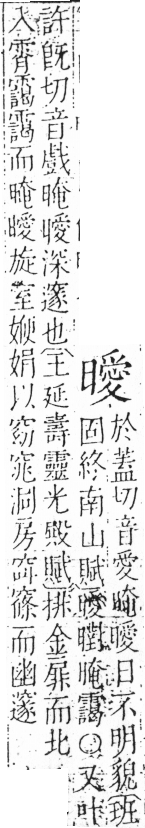 曖
於蓋切音愛晻曖日不明貌班
固終南山賦曖曃晻靄○又叶
許旣切音戲晻曖深邃也王延壽靈光殿賦排金扉而北
入霄靄靄而晻曖旋室㛹娟以窈窕洞房窱而幽邃